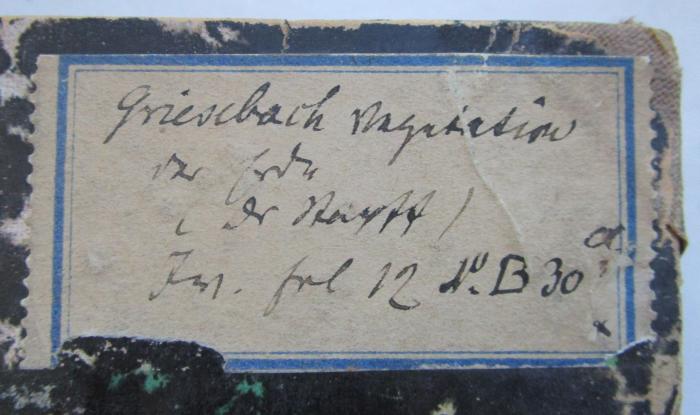 Griesebach Vegetation
der Erde
( Dr Stapff )
Inv. fol 12 No. B 30 a